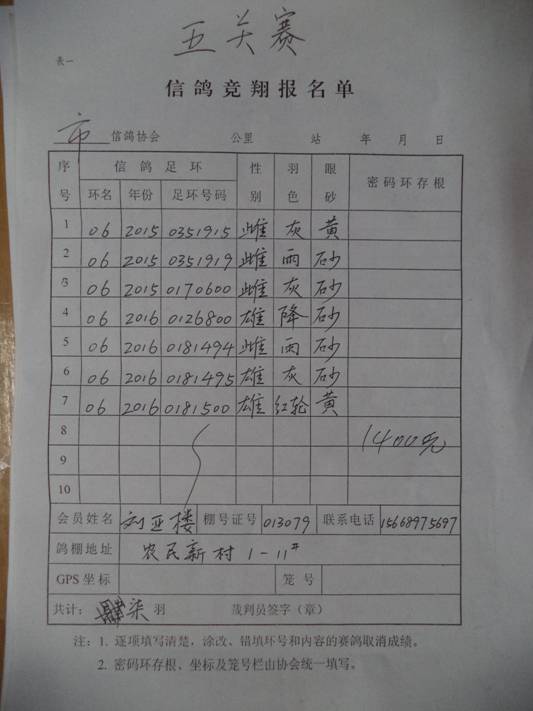 五关赛
表一
信鸽竞翔报名单
市 信鸽协会 公里 站 年 月 日
序号 信鸽足环 性别 羽色 眼砂 密码环存根
环名 年份 足环号码
1 06 2015 0351915 雌 灰 黄
2 06 2015 0351919 雌 雨 砂
3 06 2015 0170600 雌 灰 砂
4 06 2016 0126800 雄 降 砂
5 06 2016 0181494 雌 雨 砂
6 06 2016 0181495 雄 灰 砂
7 06 2016 0181500 雄 红轮 黄
8 1400元
9
10
会员姓名 刘亚楼 棚号证号 013079 联系电话 15668975697
鸽棚地址 农民新村1-11#
GPS坐标 笼号
共计: 柒 羽 裁判员签字（章）
注：1. 逐项填写清楚，涂改、错填环号和内容的赛鸽取消成绩。
2. 密码环存根、坐标及笼号栏由协会统一填写。